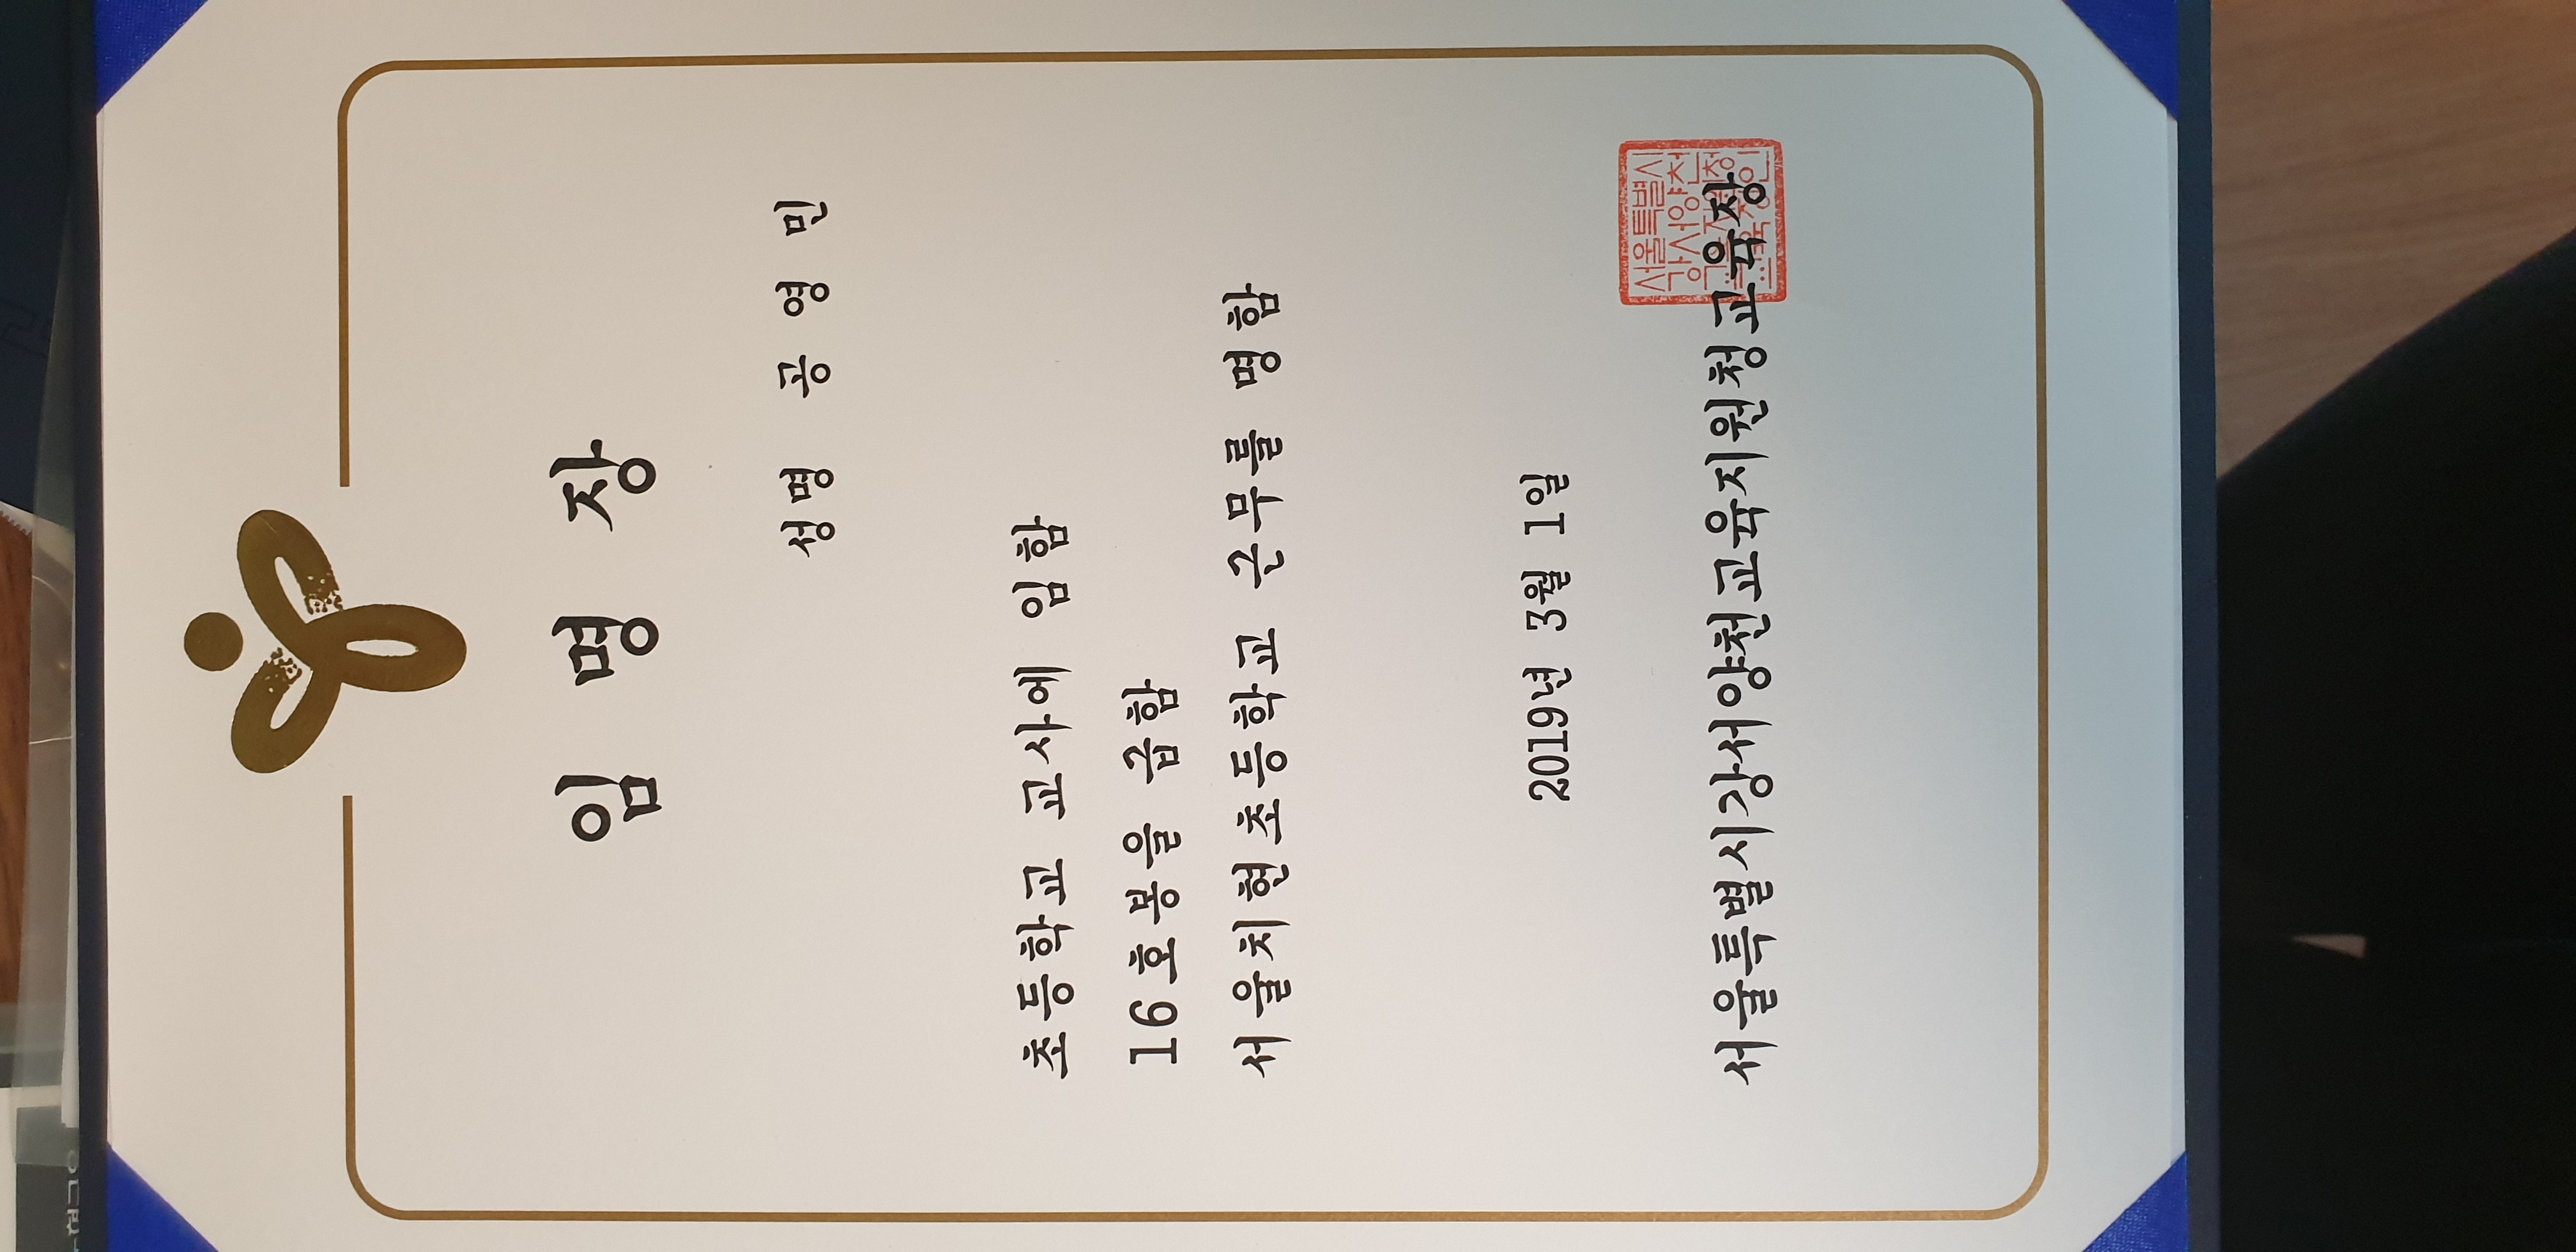 임 명 장
성명 공 영 민
초등학교 교사에 임함
16호봉을 급함
서울치현초등학교 근무를 명함
2019년 3월 1일
서울특별시강서양천교육지원청교육장
서울특별시